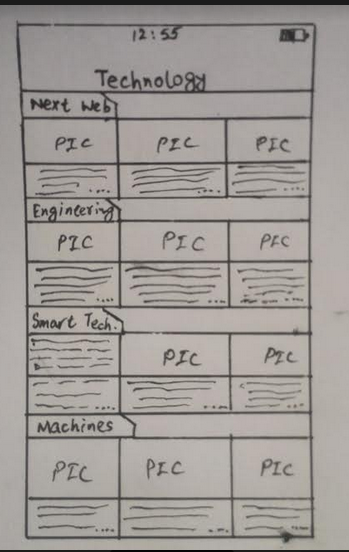 12:55
Technology
Next Web
PIC PIC PIC
Engineering
PIC PIC PIC
Smart Tech.
PIC PIC
Machines
PIC PIC PIC